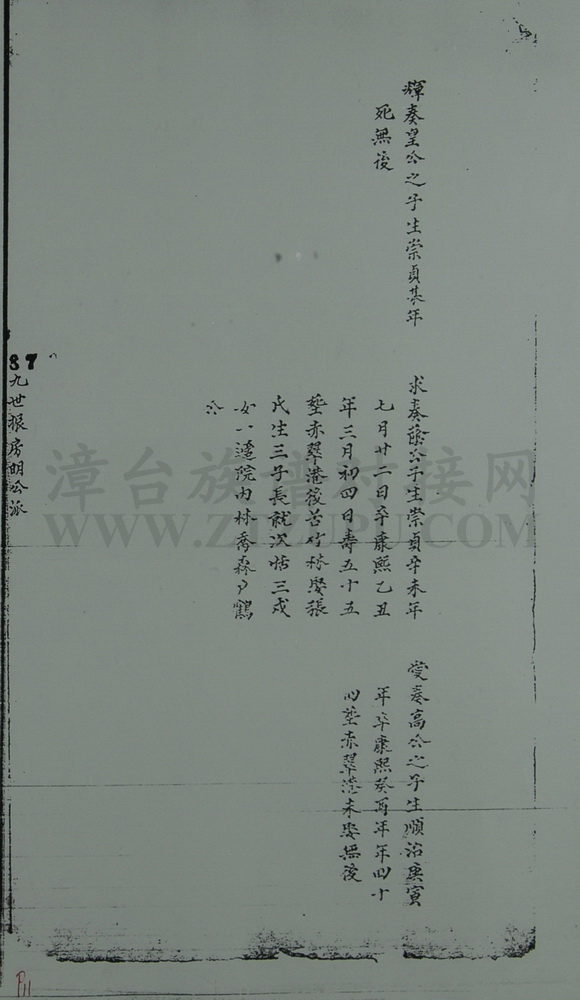 輝奏皇公之子生崇貞某年
死無後
求奏 公子生崇貞辛未年
七月廿二日卒康熙乙丑
年三月初四日壽五十五
塟赤翠港後苦竹林娶張
氏生三子長就次恬三成
女一適院内林喬森 鶴
公
受奏高公之子生順治庚寅
年卒康熙癸酉年年四十
四塟赤翠港未娶無後
87
九世振房明公派
漳台族谱对接网
WWW.ZTZUPU.COM
P11